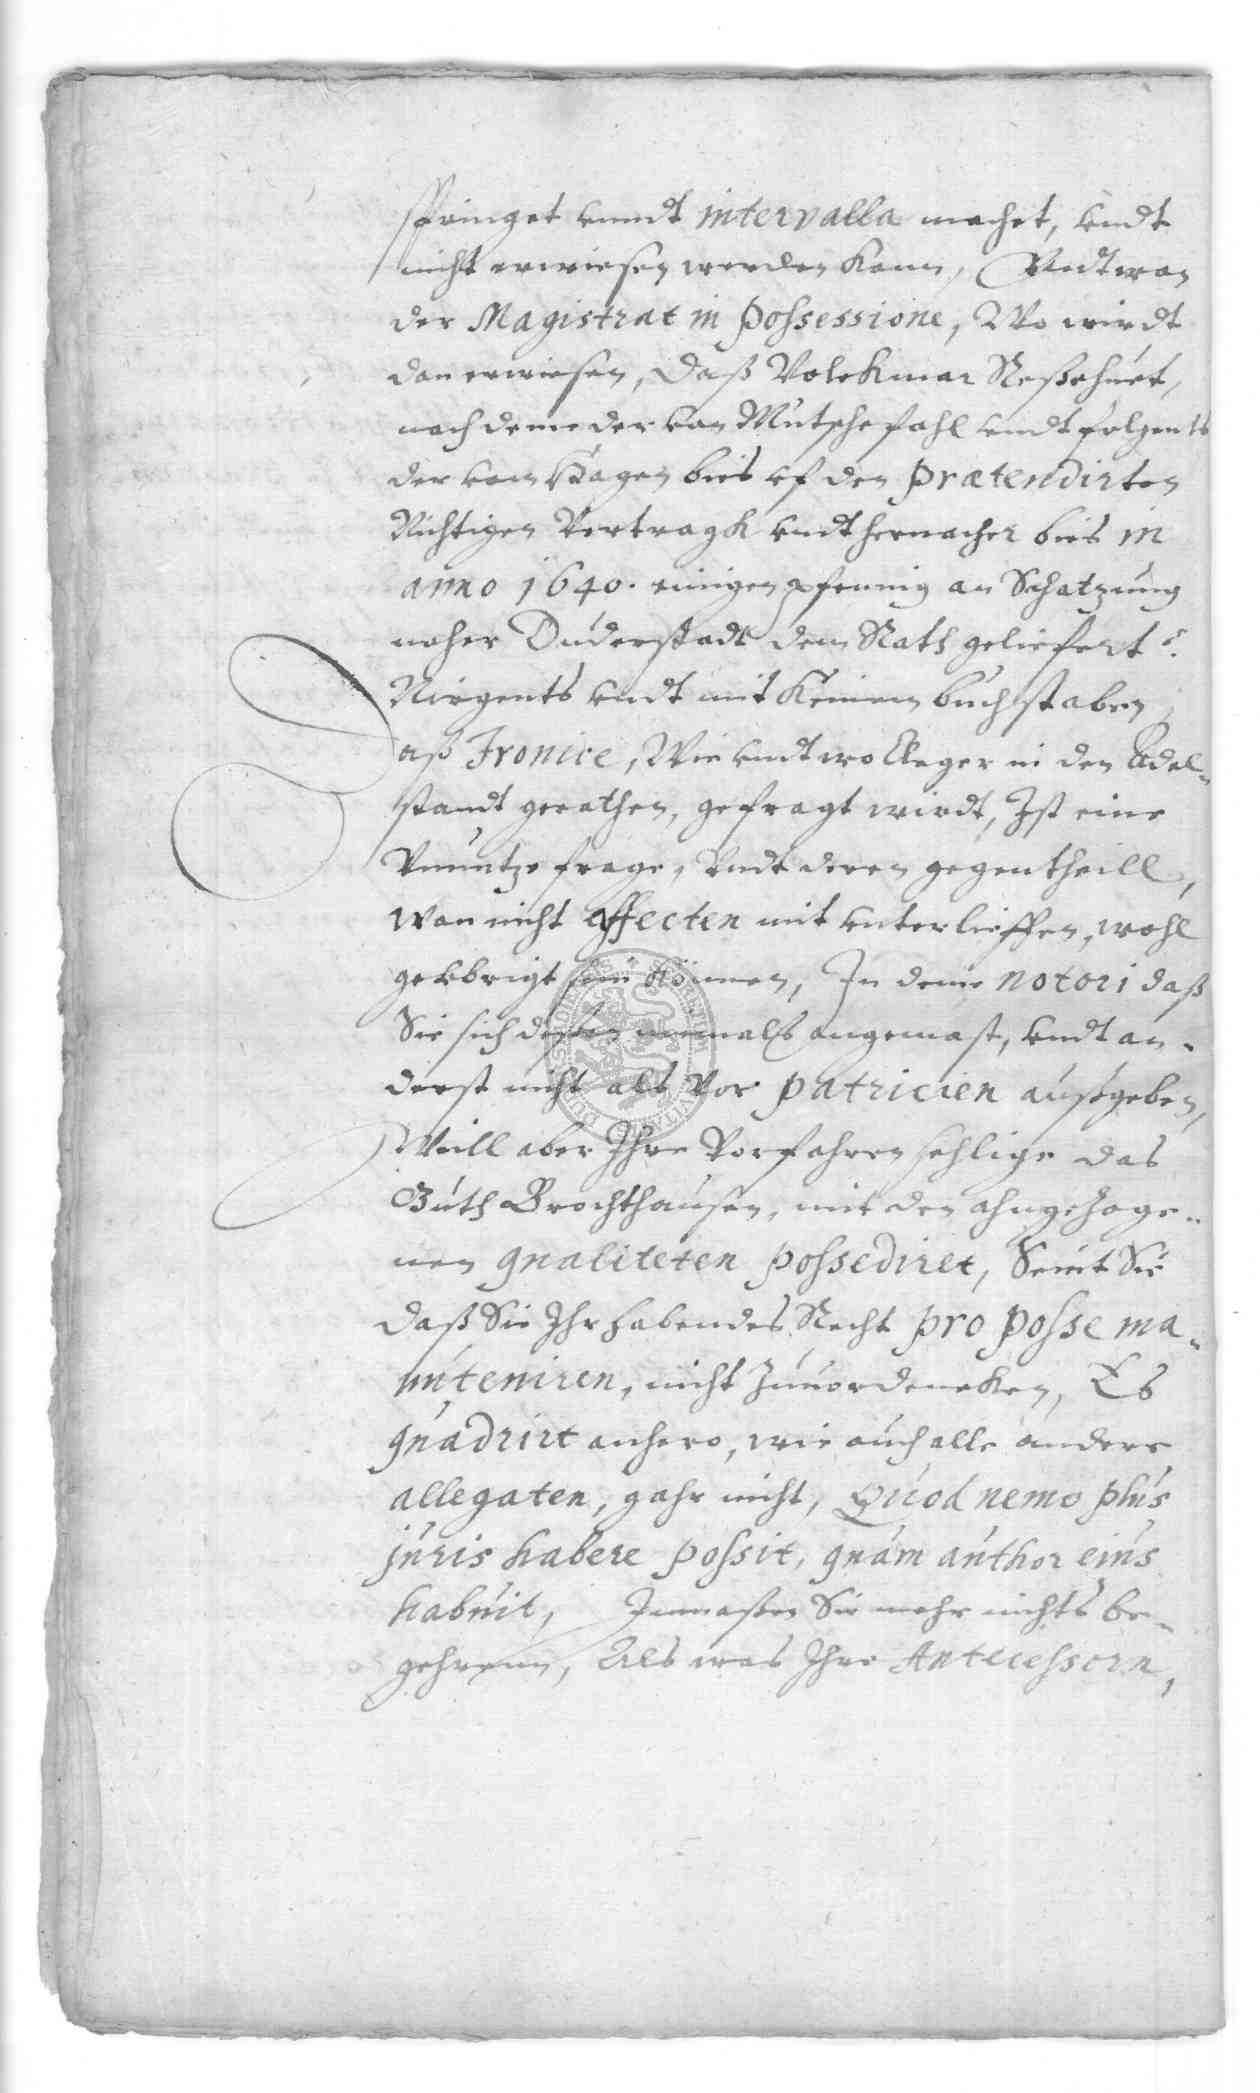 springet vnndt intervalla machet, vndt
nicht erwiesen werden kann, Vndt wan
der Magistrat in possessione, Wo wirdt
dan erwiesen, daß Volckmar
nach deme der von Mutschefahl vndt folgents
der von Hagen bies vf den prætendirten
Nichtigen Vertragk vndt hernacher bies in
anno 1640. einigen pfennig an Schatzung
naher Duderstadt dem Rath geliefert?
Nirgents vndt mit keinem buchstaben,
Daß Ironice, Wie vndt wo Cleger in den Adel-
standt gerathen, gefragt wirdt, Ist eine
Vnnütze frage, Vndt deren gegentheill,
Wan nicht affecten mit vnterlieffen, wohl
geübrigt sein können, In deme notori daß
Sie sich deßen niemals angemast, vndt an-
derst nicht als vor patricien außgeben,
Weill aber Ihre Vorfahren sehlige das
Guth Brochthausen, mit den ahngezoge-
nen qualiteten possediret, Seint Sie
daß Sie Ihr habendes Recht pro posse ma-
nuteniren, nicht Zuuordencken, Es
quadrirt anhero, wie auch alle andere
allegaten, gahr nicht, Quod nemo plus
juris habere possit, quam author eius
habuit, Inmaßen Sie mehr nichts be-
gehrenn, Als was Ihre Antecessorn,